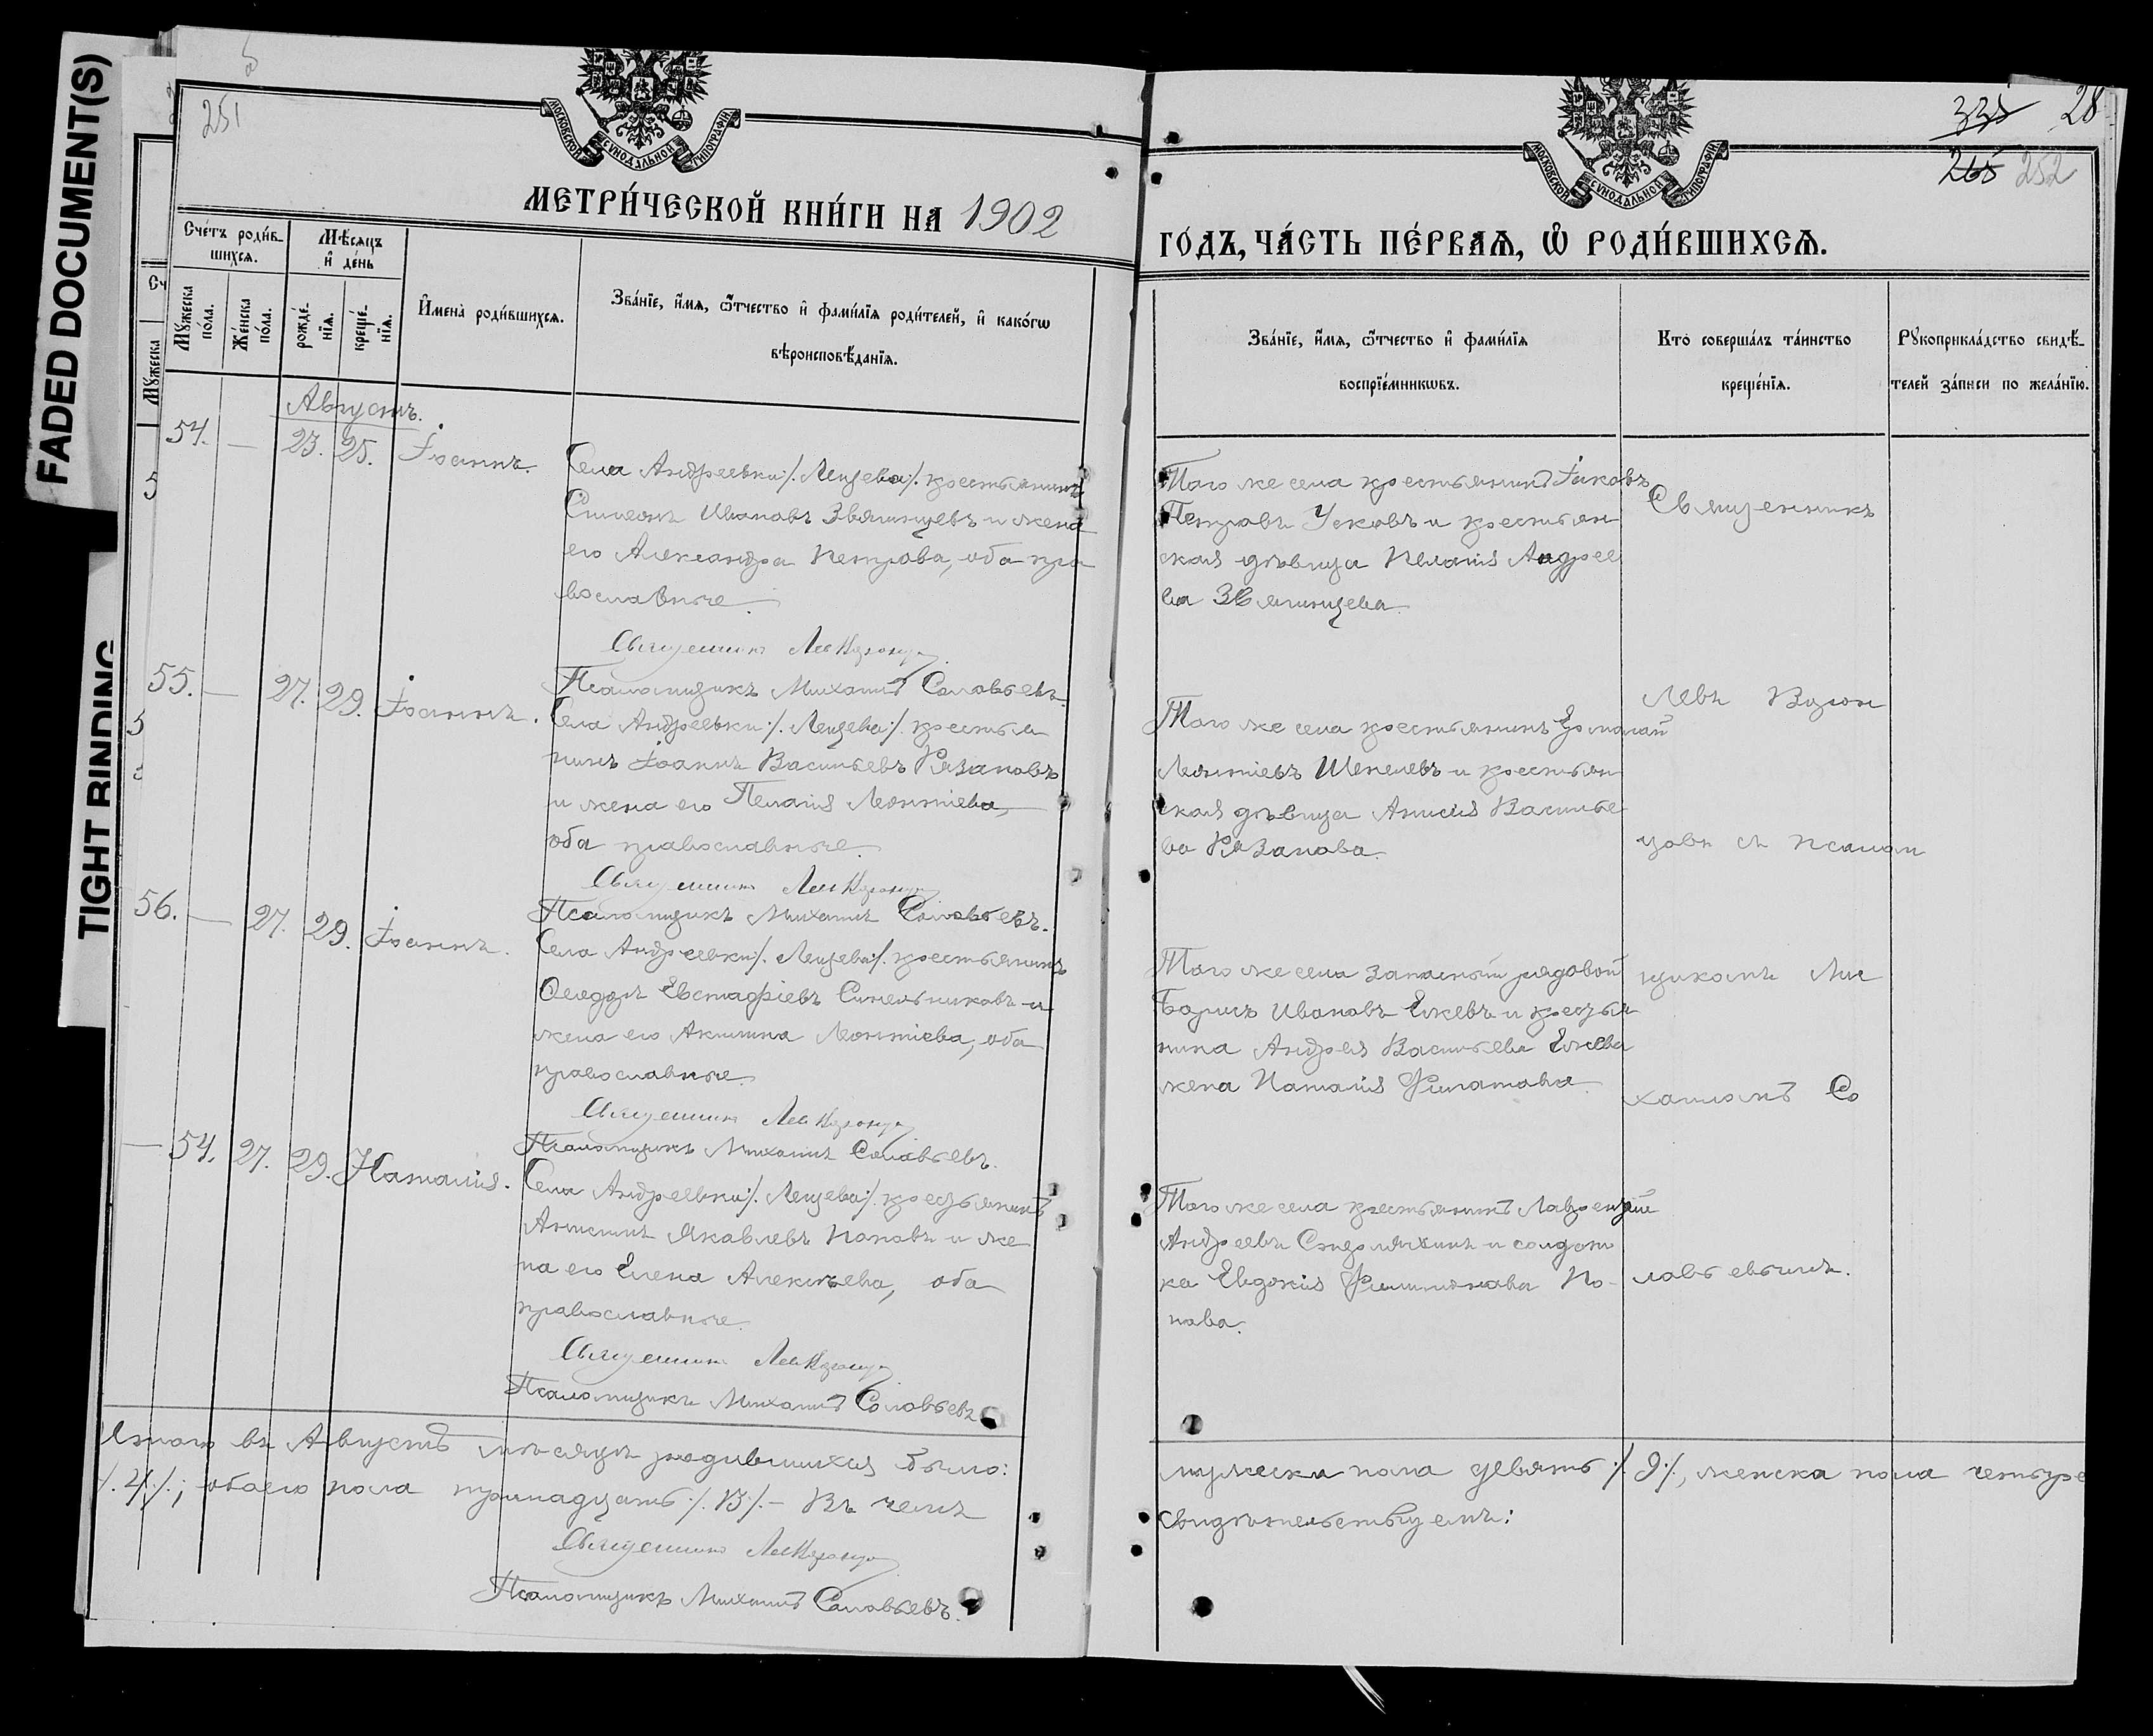 FADED DOCUMENT(S)
TIGHT BINDING
251
МОСКОВСКОЙ СѴНОДАЛЬНОЙ ТИПОГРАФІИ
МЕТРИ́ЧЕСКОЙ КНИ́ГИ НА 1902
Сче́тъ роди́в-
шихся.
Мѣ́сяцъ
и҆ де́нь
Мꙋ́жеска
по́ла.
Же́нска
по́ла.
рожде́-
нїя.
креще́-
нїя.
И҆мена̀ роди́вшихся.
Зва́нїе, и҆́мя, ѻ҆́тчество и҆ фами́лїя роди́телей, и҆ како́гѡ
вѣроисповѣ́данїя.
Августъ.
54. — 23. 25. Іоаннъ.
Села Андреевки /. Лещева /. крестьянинъ
Симеонъ Ивановъ Звягинцевъ и жена
его Александра Петрова, оба пра
вославные.
Священникъ Левъ
Псаломщикъ Михаилъ Соловьевъ.
55. — 27. 29. Іоаннъ.
Села Андреевки /. Лещева /. крестья
нинъ Іоаннъ Васильевъ Рязановъ
и жена его Пелагія Леонтіева,
оба православные.
Священникъ Левъ
Псаломщикъ Михаилъ Соловьевъ.
56. — 27. 29. Іоаннъ.
Села Андреевки /. Лещева /. крестьянинъ
Ѳеодоръ Евстафіевъ Синельниковъ и
жена его Акилина Леонтіева, оба
православные.
Священникъ Левъ
Псаломщикъ Михаилъ Соловьевъ.
— 54. 27. 29. Наталія.
Села Андреевки /. Лещева /. крестьянинъ
Яковлевъ Поповъ и же
на его Елена Алексѣева, оба
православные.
Священникъ Левъ
Псаломщикъ Михаилъ Соловьевъ
Итого въ Августѣ мѣсяцѣ родившихся было:
/. 4 /.; обоего пола тринадцать /. 13 /. — Въ чемъ
Священникъ Левъ
Псаломщикъ Михаилъ Соловьевъ.
335 28
265 252
МОСКОВСКОЙ СѴНОДАЛЬНОЙ ТИПОГРАФІИ
ГО́ДЪ, ЧА́СТЬ ПЕ́РВАЯ, Ѡ҆ РОДИ́ВШИХСЯ.
Зва́нїе, и҆́мя, ѻ҆́тчество и҆ фами́лїя
воспрїе́мникѡвъ.
Кто̀ соверша́лъ та́инство
креще́нїя.
Рꙋкоприкла́дство свидѣ́-
телей за́писи по жела́нїю.
Того же села крестьянинъ Іаковъ
Петровъ Усковъ и крестьян
ская дѣвица Пелагія Андрее
ва Звягинцева.
Того же села крестьянинъ Ермолай
Леонтіевъ Шепелевъ и крестьян
ская дѣвица Анисія Василье
ва Рязанова.
Того же села запасный рядовой
Борисъ Ивановъ Ежевъ и крестья
нина Андрея Васильева Ежева
жена Наталія Филатова.
Того же села крестьянинъ Лаврентій
Андреевъ и солдат
ка Евдокія Филимонова По-
пова.
Священникъ
Левъ
цовъ съ псалом
щикомъ Ми
хаиломъ Со
ловьевымъ.
мужеска пола девять /. 9 /., женска пола четыре
свидѣтельствуемъ: